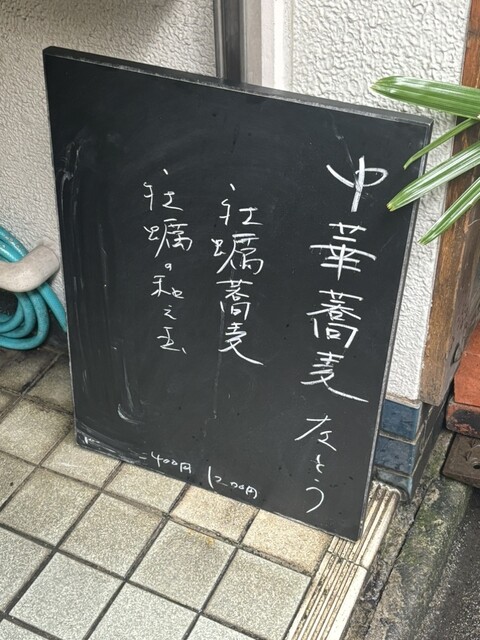 中華蕎麦 左とう
牡蠣蕎麦 1200円
牡蠣の和え玉 400円